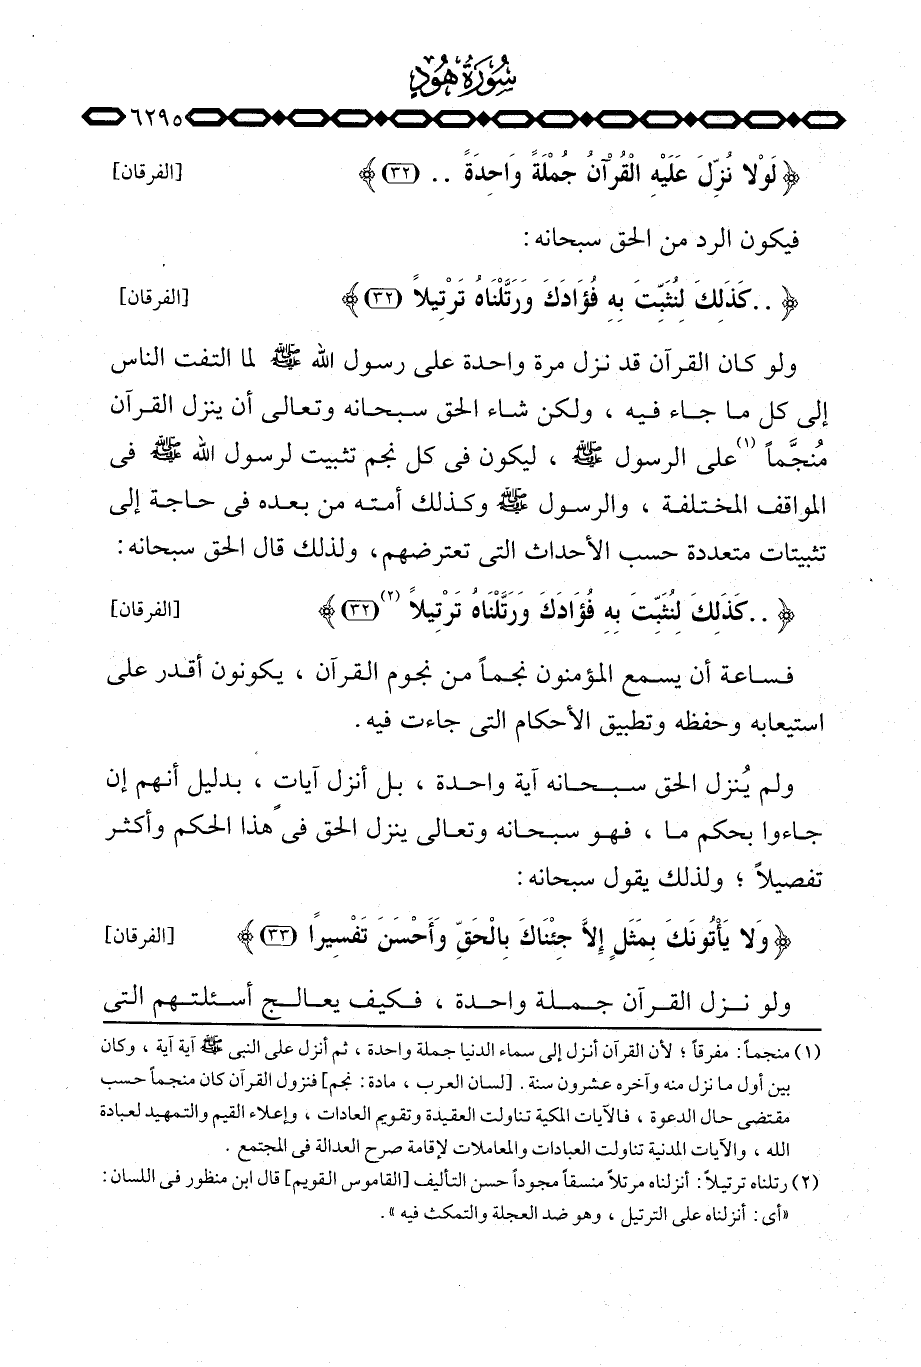 سُورَةُ هُودٍ
٦٢٩٥
﴿ لَوْلا نُزِّلَ عَلَيْهِ الْقُرْآنُ جُمْلَةً وَاحِدَةً .. (٣٢) ﴾ [الفرقان]
فيكون الرد من الحق سبحانه :
﴿ .. كَذَلِكَ لِنُثَبِّتَ بِهِ فُؤَادَكَ وَرَتَّلْنَاهُ تَرْتِيلاً (٣٢) ﴾ [الفرقان]
ولو كان القرآن قد نزل مرة واحدة على رسول الله ﷺ لما التفت الناس
إلى كل ما جاء فيه ، ولكن شاء الحق سبحانه وتعالى أن ينزل القرآن
مُنجَّماً (١) على الرسول ﷺ ، ليكون فى كل نجم تثبيت لرسول الله ﷺ فى
المواقف المختلفة ، والرسول ﷺ وكذلك أمته من بعده فى حاجة إلى
تثبيتات متعددة حسب الأحداث التى تعترضهم، ولذلك قال الحق سبحانه :
﴿ .. كَذَلِكَ لِنُثَبِّتَ بِهِ فُؤَادَكَ وَرَتَّلْنَاهُ تَرْتِيلاً (٢) (٣٢) ﴾ [الفرقان]
فساعة أن يسمع المؤمنون نجماً من نجوم القرآن ، يكونون أقدر على
استيعابه وحفظه وتطبيق الأحكام التى جاءت فيه .
ولم يُنزل الحق سبحانه آية واحدة ، بل أنزل آيات ، بدليل أنهم إن
جاءوا بحكم ما ، فهو سبحانه وتعالى ينزل الحق فى هذا الحكم وأكثر
تفصيلاً ؛ ولذلك يقول سبحانه :
﴿ وَلا يَأْتُونَكَ بِمَثَلٍ إِلاَّ جِئْنَاكَ بِالْحَقِّ وَأَحْسَنَ تَفْسِيرًا (٣٣) ﴾ [الفرقان]
ولو نزل القرآن جملة واحدة ، فكيف يعالج أسئلتهم التى
(١) منجماً : مفرقاً ؛ لأن القرآن أنزل إلى سماء الدنيا جملة واحدة ، ثم أنزل على النبى ﷺ آية آية ، وكان
بين أول ما نزل منه وآخره عشرون سنة . [لسان العرب ، مادة : نجم] فنزول القرآن كان منجماً حسب
مقتضى حال الدعوة ، فالآيات المكية تناولت العقيدة وتقويم العادات ، وإعلاء القيم والتمهيد لعبادة
الله ، والآيات المدنية تناولت العبادات والمعاملات لإقامة صرح العدالة فى المجتمع .
(٢) رتلناه ترتيلاً : أنزلناه مرتلاً منسقاً مجوداً حسن التأليف [القاموس القويم] قال ابن منظور فى اللسان :
«أى : أنزلناه على الترتيل ، وهو ضد العجلة والتمكث فيه » .